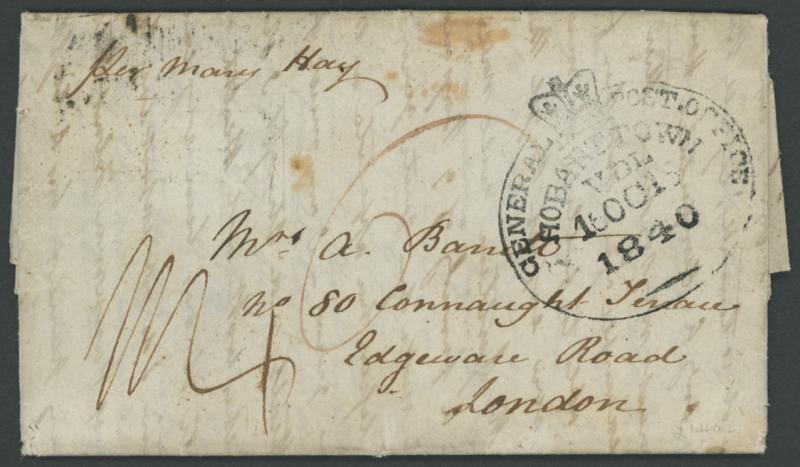 per Mary Hay
GENERAL POST.OFFICE
HOBART TOWN
VDL
OC
1840
Mrs A.
No 80 Connaught Terrace
Edgeware Road
London